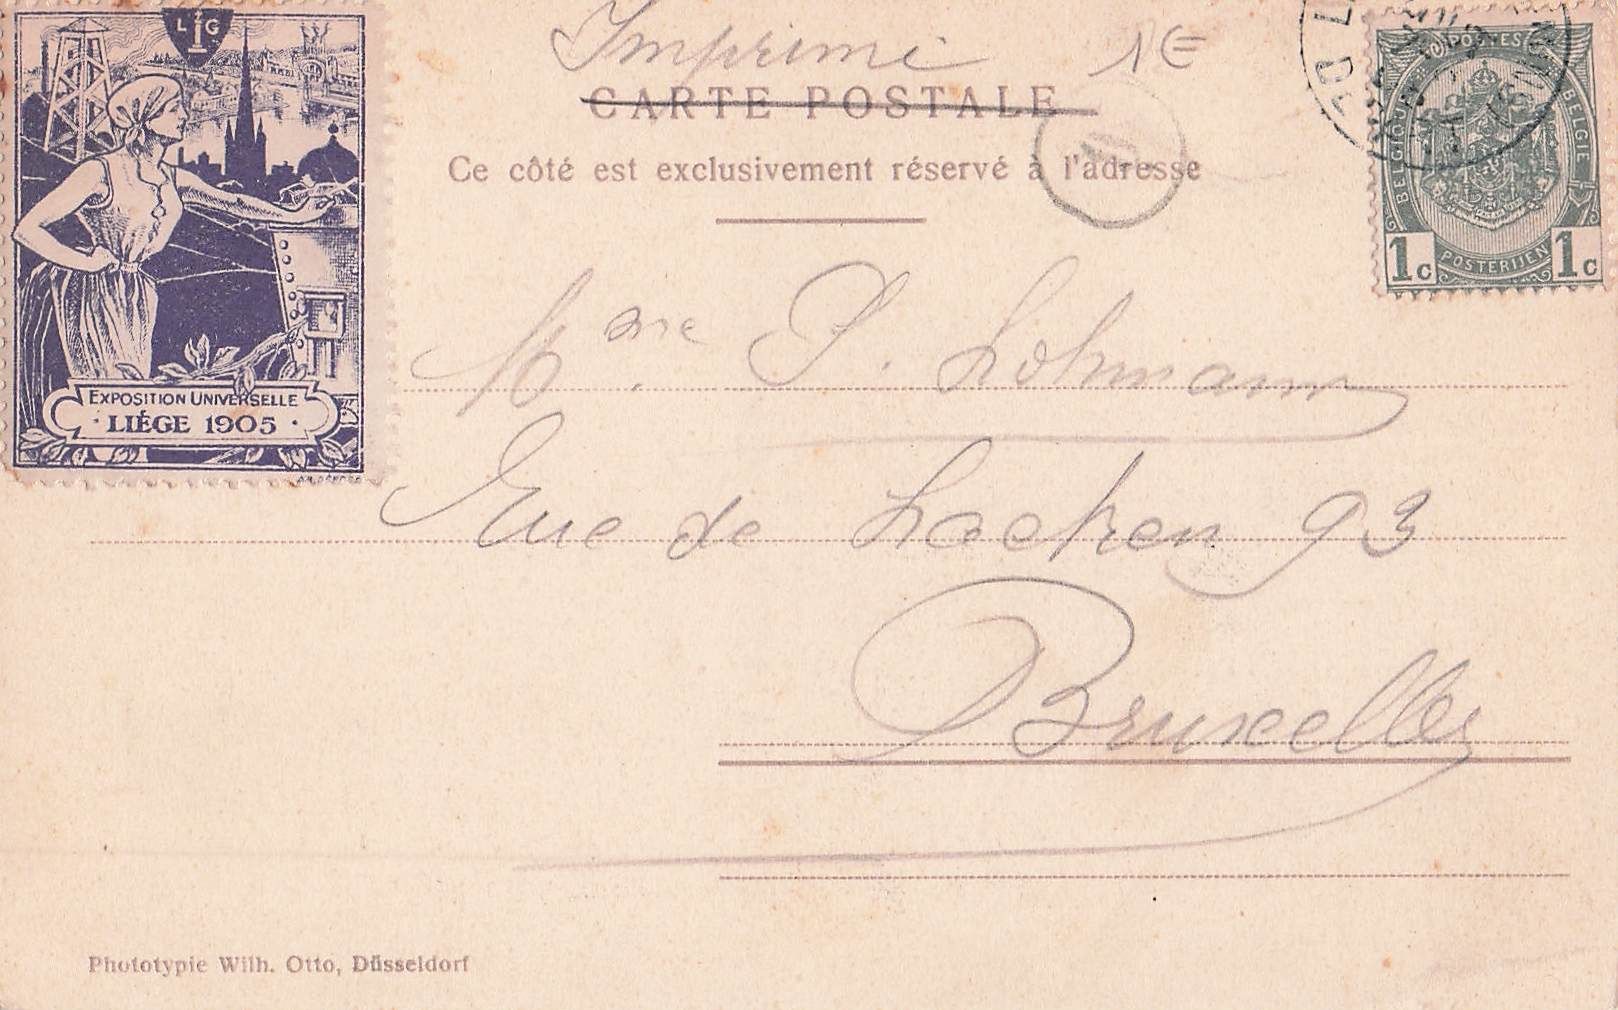 L G
EXPOSITION UNIVERSELLE
· LIÉGE 1905 ·
Imprimé 1€
CARTE POSTALE
Ce côté est exclusivement réservé à l'adresse
POSTES
BELGIQUE BELGIE
1c POSTERIJEN 1c
Mme. P. Lohmann
Rue de Laeken 93
Bruxelles
Phototypie Wilh. Otto, Düsseldorf